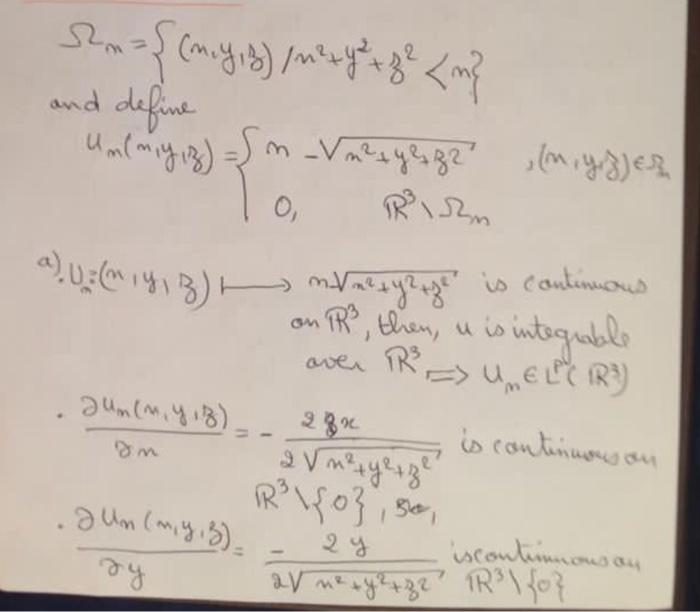 Ωn = { (x, y, z) / x² + y² + z² < n}
and define
un(x, y, z) = { n - √(x² + y² + z²) , (x, y, z) ∈ Ωn
0, ℝ³ \ Ωn
a). Un: (x, y, z) ⟼ n - √(x² + y² + z²) is continuous
on ℝ³, then, u is integrable
over ℝ³ ⟹ Un ∈ Lᵖ(ℝ³)
. ∂un(x, y, z)/∂x = - 2x / 2√(x² + y² + z²) is continuous on
ℝ³ \ {0}, so,
. ∂un(x, y, z)/∂y = - 2y / 2√(x² + y² + z²) is continuous on
ℝ³ \ {0}